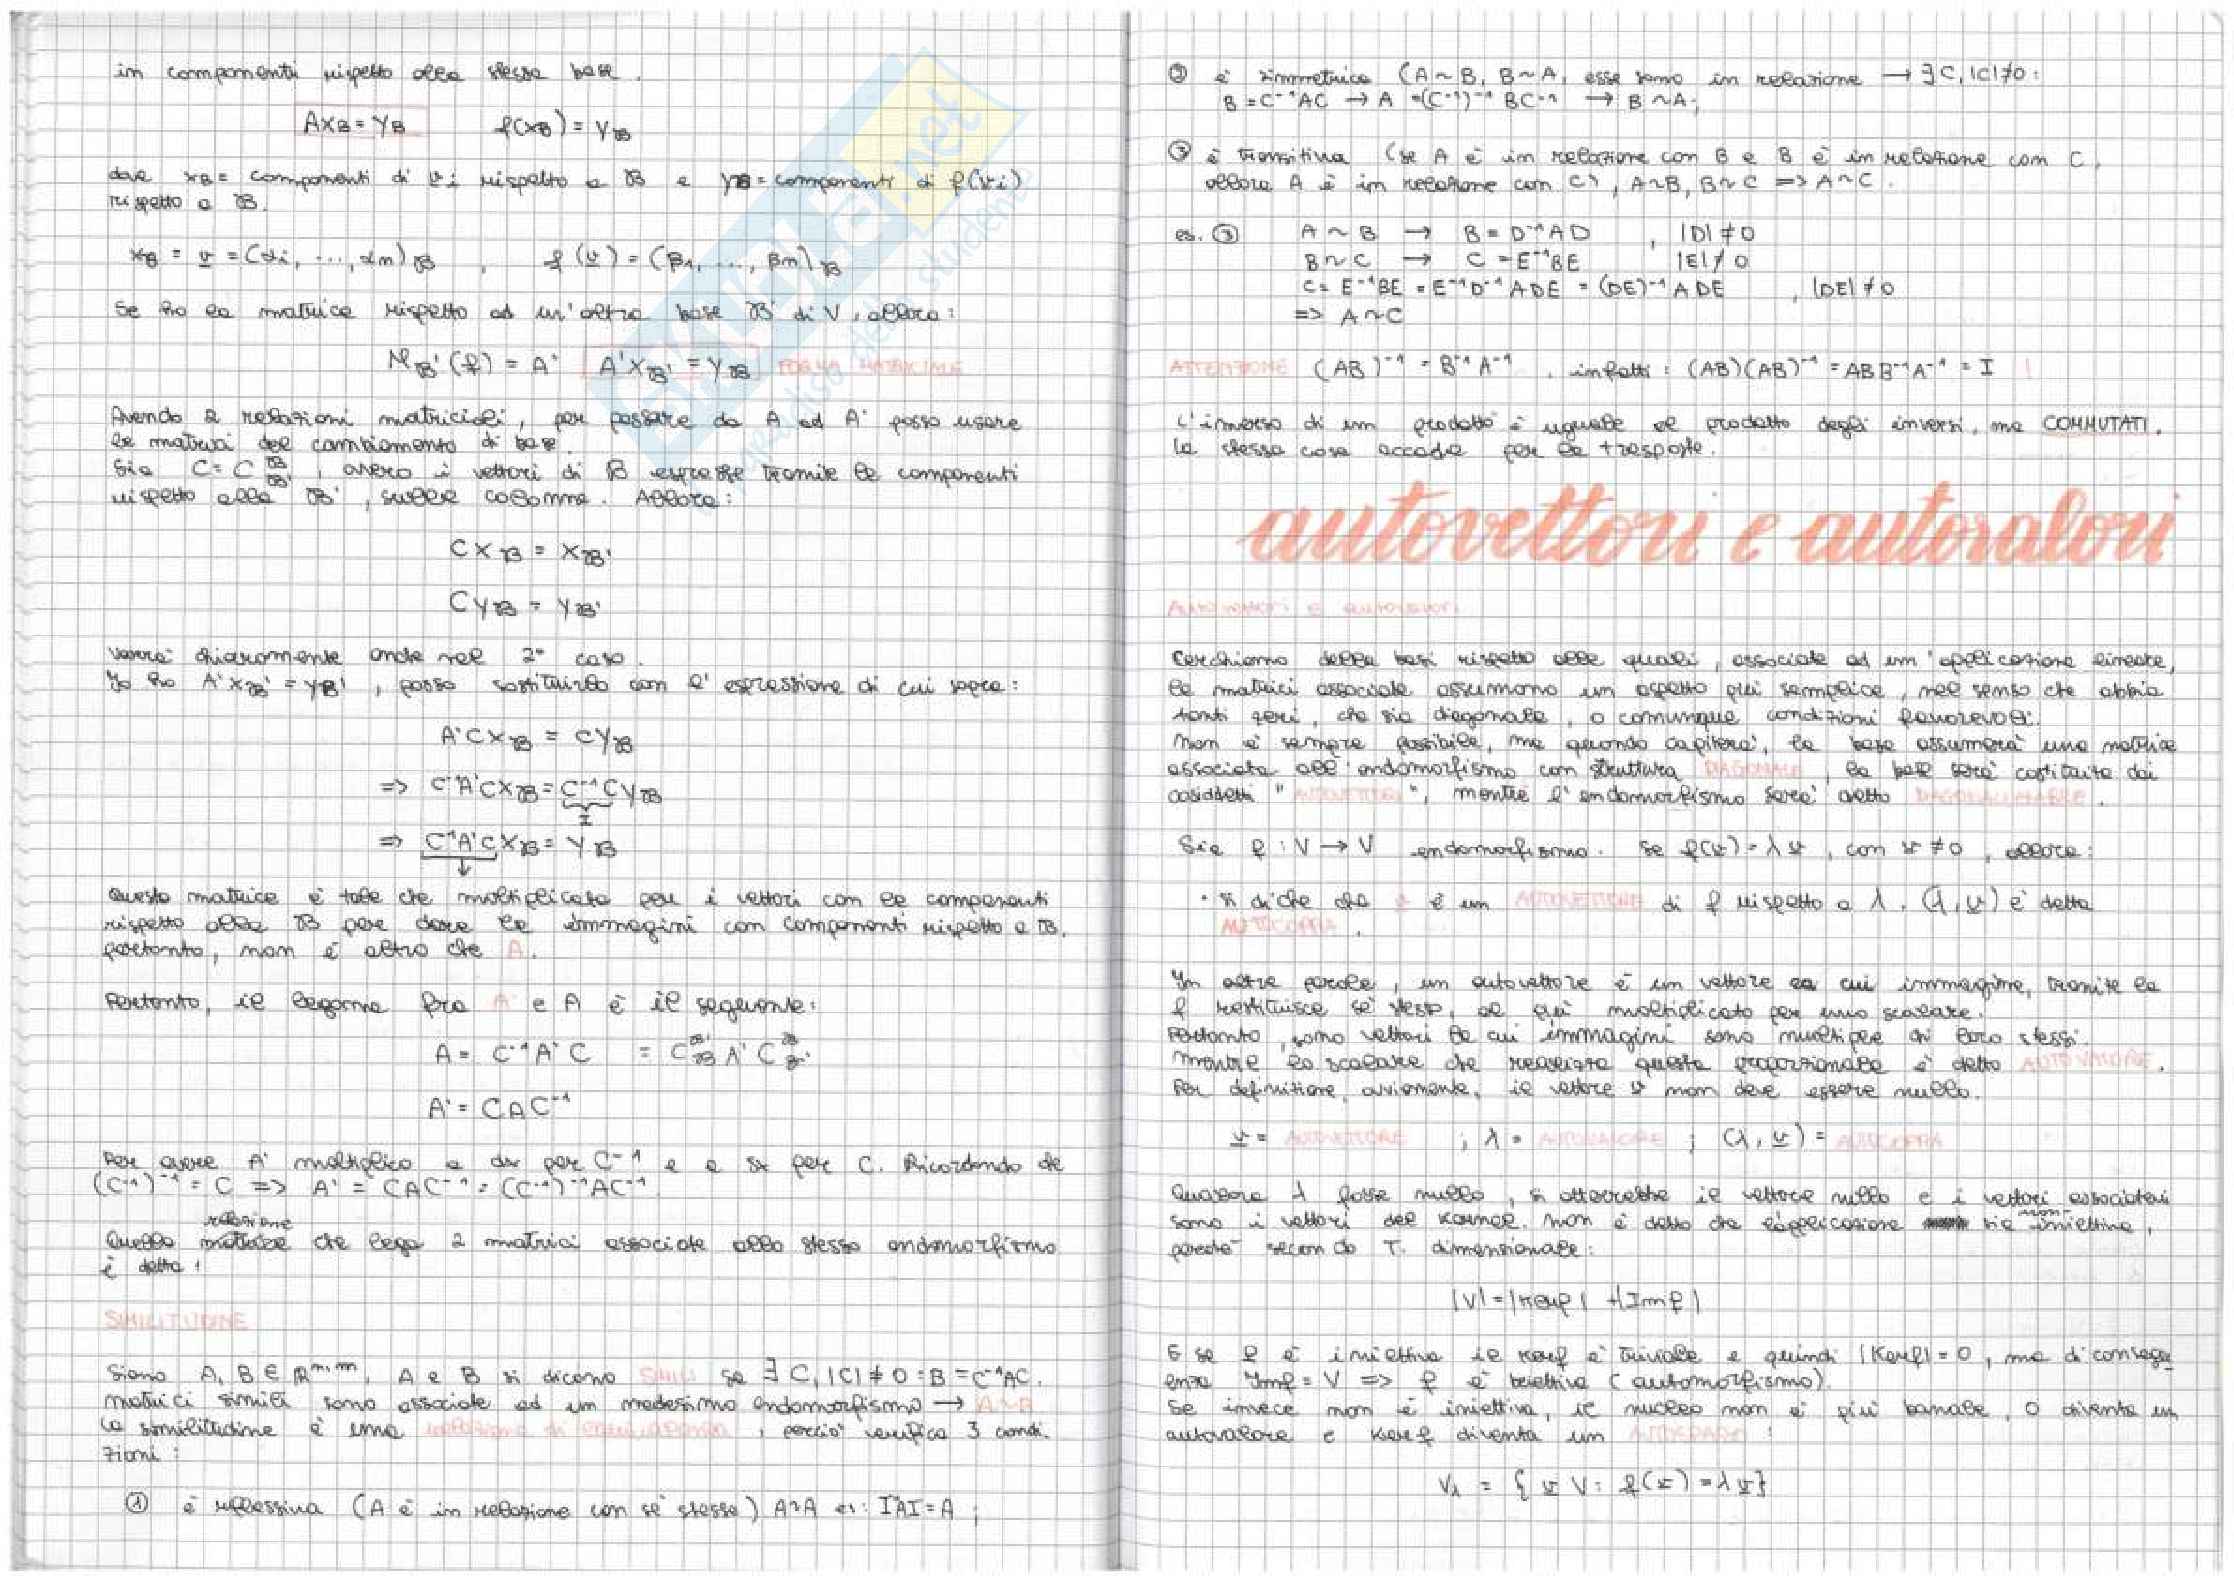 in componenti rispetto alla stessa base.
AxB = yB f(xB) = yB
dove xB = componenti di vi rispetto a B e yB = componenti di f(vi)
rispetto a B.
xB = v = (αi, ..., αn)B , f(v) = (β1, ..., βn)B
Se ho la matrice rispetto ad un'altra base B' di V, allora:
MB'(f) = A' A'xB' = yB FORMA MATRICIALE
Avendo 2 relazioni matriciali, per passare da A ad A' posso usare
le matrici del cambiamento di base.
Sia C = C B B', ovvero i vettori di B espresse tramite le componenti
rispetto alla B', sulle colonne. Allora:
CxB = xB'
CyB = yB'
Varrà chiaramente anche nel 2° caso.
Io ho A'xB' = yB', posso sostituirlo con l'espressione di cui sopra:
A'CxB = CyB
=> C⁻¹A'CxB = C⁻¹CyB
I
=> C⁻¹A'CxB = yB
Questa matrice è tale che moltiplicata per i vettori con le componenti
rispetto alla B per dare le immagini con componenti rispetto a B.
pertanto, non è altro che A.
Pertanto, il legame fra A' e A è il seguente:
A = C⁻¹A'C = C B' B A' C B B'
A' = CAC⁻¹
Per avere A' moltiplico a dx per C⁻¹ e a sx per C. Ricordando che
(C⁻¹)⁻¹ = C => A' = CAC⁻¹ = (C⁻¹)⁻¹AC⁻¹
relazione
Quella matrice che lega 2 matrici associate allo stesso endomorfismo
è detta:
SIMILITUDINE
Siano A, B ∈ ℝn,n, A e B si dicono SIMILI se ∃ C, |C| ≠ 0 : B = C⁻¹AC.
matrici simili sono associate ad un medesimo endomorfismo → A~B
La similitudine è una relazione di equivalenza, perciò verifica 3 condi-
zioni:
① è riflessiva (A è in relazione con sé stessa) A~A es: I⁻¹AI = A ;
② è simmetrica (A~B, B~A, esse sono in relazione → ∃ C, |C| ≠ 0 :
B = C⁻¹AC → A = (C⁻¹)⁻¹ BC⁻¹ → B~A;
③ è transitiva (se A è in relazione con B e B è in relazione con C,
allora A è in relazione con C), A~B, B~C => A~C.
es. ③ A ~ B → B = D⁻¹AD , |D| ≠ 0
B ~ C → C = E⁻¹BE |E| ≠ 0
C = E⁻¹BE = E⁻¹D⁻¹ADE = (DE)⁻¹ADE , |DE| ≠ 0
=> A~C
ATTENZIONE (AB)⁻¹ = B⁻¹A⁻¹ . infatti: (AB)(AB)⁻¹ = ABB⁻¹A⁻¹ = I !
L'inverso di un prodotto è uguale al prodotto degli inversi, ma COMMUTATI.
La stessa cosa accade per le trasposte.
autovettori e autovalori
Autovettori e autovalori
Cerchiamo delle basi rispetto alle quali, associate ad un'applicazione lineare,
le matrici associate assumono un aspetto più semplice, nel senso che abbia
tanti zeri, che sia diagonale, o comunque condizioni favorevoli.
Non è sempre possibile, ma quando capiterà, la base assumerà una matrice
associata all'endomorfismo con struttura DIAGONALE, la base sarà costituita dai
cosiddetti "AUTOVETTORI", mentre l'endomorfismo sarà detto DIAGONALIZZABILE.
Sia f : V → V endomorfismo. Se f(v) = λv, con v ≠ 0, allora:
• si dice che v è un AUTOVETTORE di f rispetto a λ. (λ, v) è detta
AUTOCOPPIA.
In altre parole, un autovettore è un vettore la cui immagine, tramite la
f restituisce sé stesso, al più moltiplicato per uno scalare.
Pertanto, sono vettori le cui immagini sono multiple di loro stessi.
Mentre lo scalare che realizza questa proporzionale è detto AUTOVALORE.
Per definizione, ovviamente, il vettore v non deve essere nullo.
v = AUTOVETTORE ; λ = AUTOVALORE ; (λ, v) = AUTOCOPPIA
Qualora λ fosse nullo, si otterrebbe il vettore nullo e i vettori associati
sono i vettori del kernel. Non è detto che l'applicazione sia non iniettiva,
perché secondo T. dimensionale:
|V| = |Kerf| + |Imf|
E se f è iniettiva il kerf è triviale e quindi |Kerf| = 0, ma di consegu-
enza Imf = V => f è biettiva (automorfismo).
Se invece non è iniettiva, il nucleo non è più banale, 0 diventa un
autovalore e Kerf diventa un AUTOSPAZIO:
Vλ = { v V : f(v) = λv}